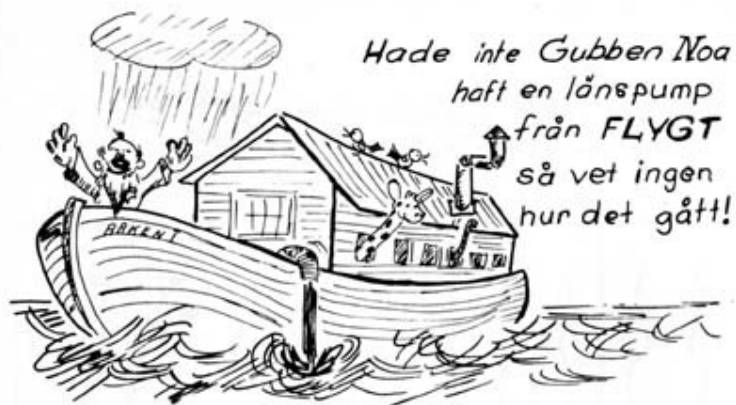 Hade inte Gubben Noa
haft en länspump
från FLYGT
så vet ingen
hur det gått!
ARKEN I